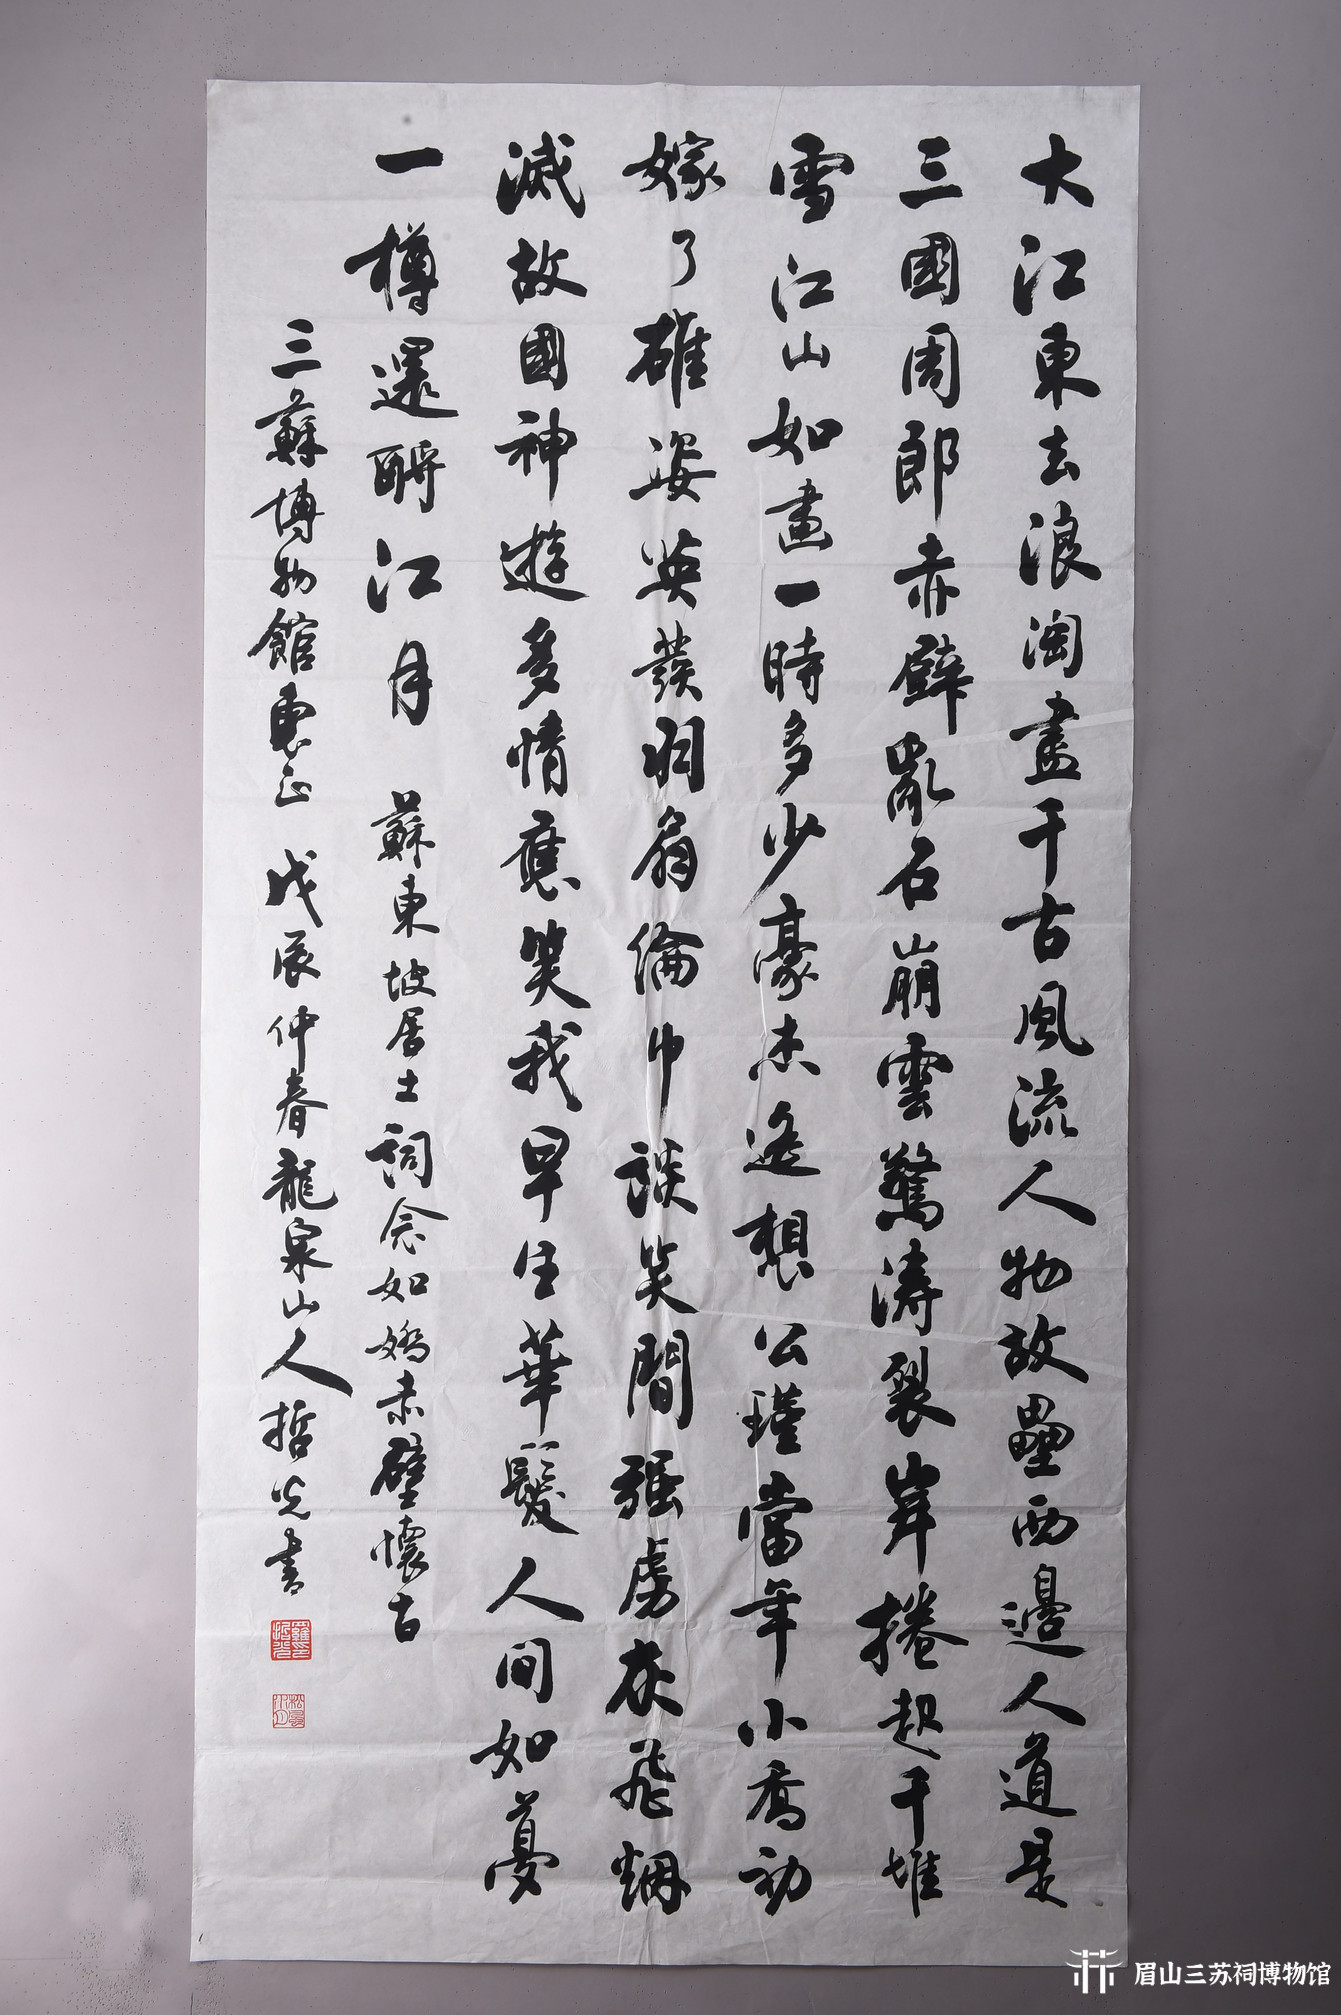 大江東去浪淘盡千古風流人物故壘西邊人道是
三國周郎赤壁亂石崩雲驚濤裂岸捲起千堆
雪江山如畫一時多少豪杰遙想公瑾當年小喬初
嫁了雄姿英發羽扇綸巾談笑間強虜灰飛烟
滅故國神遊多情應笑我早生華髮人間如夢
一樽還酹江月 蘇東坡居士詞念奴嬌赤壁懷古
三蘇博物館惠正 戊辰仲春龍泉山人哲光書
羅哲光
眉山三苏祠博物馆